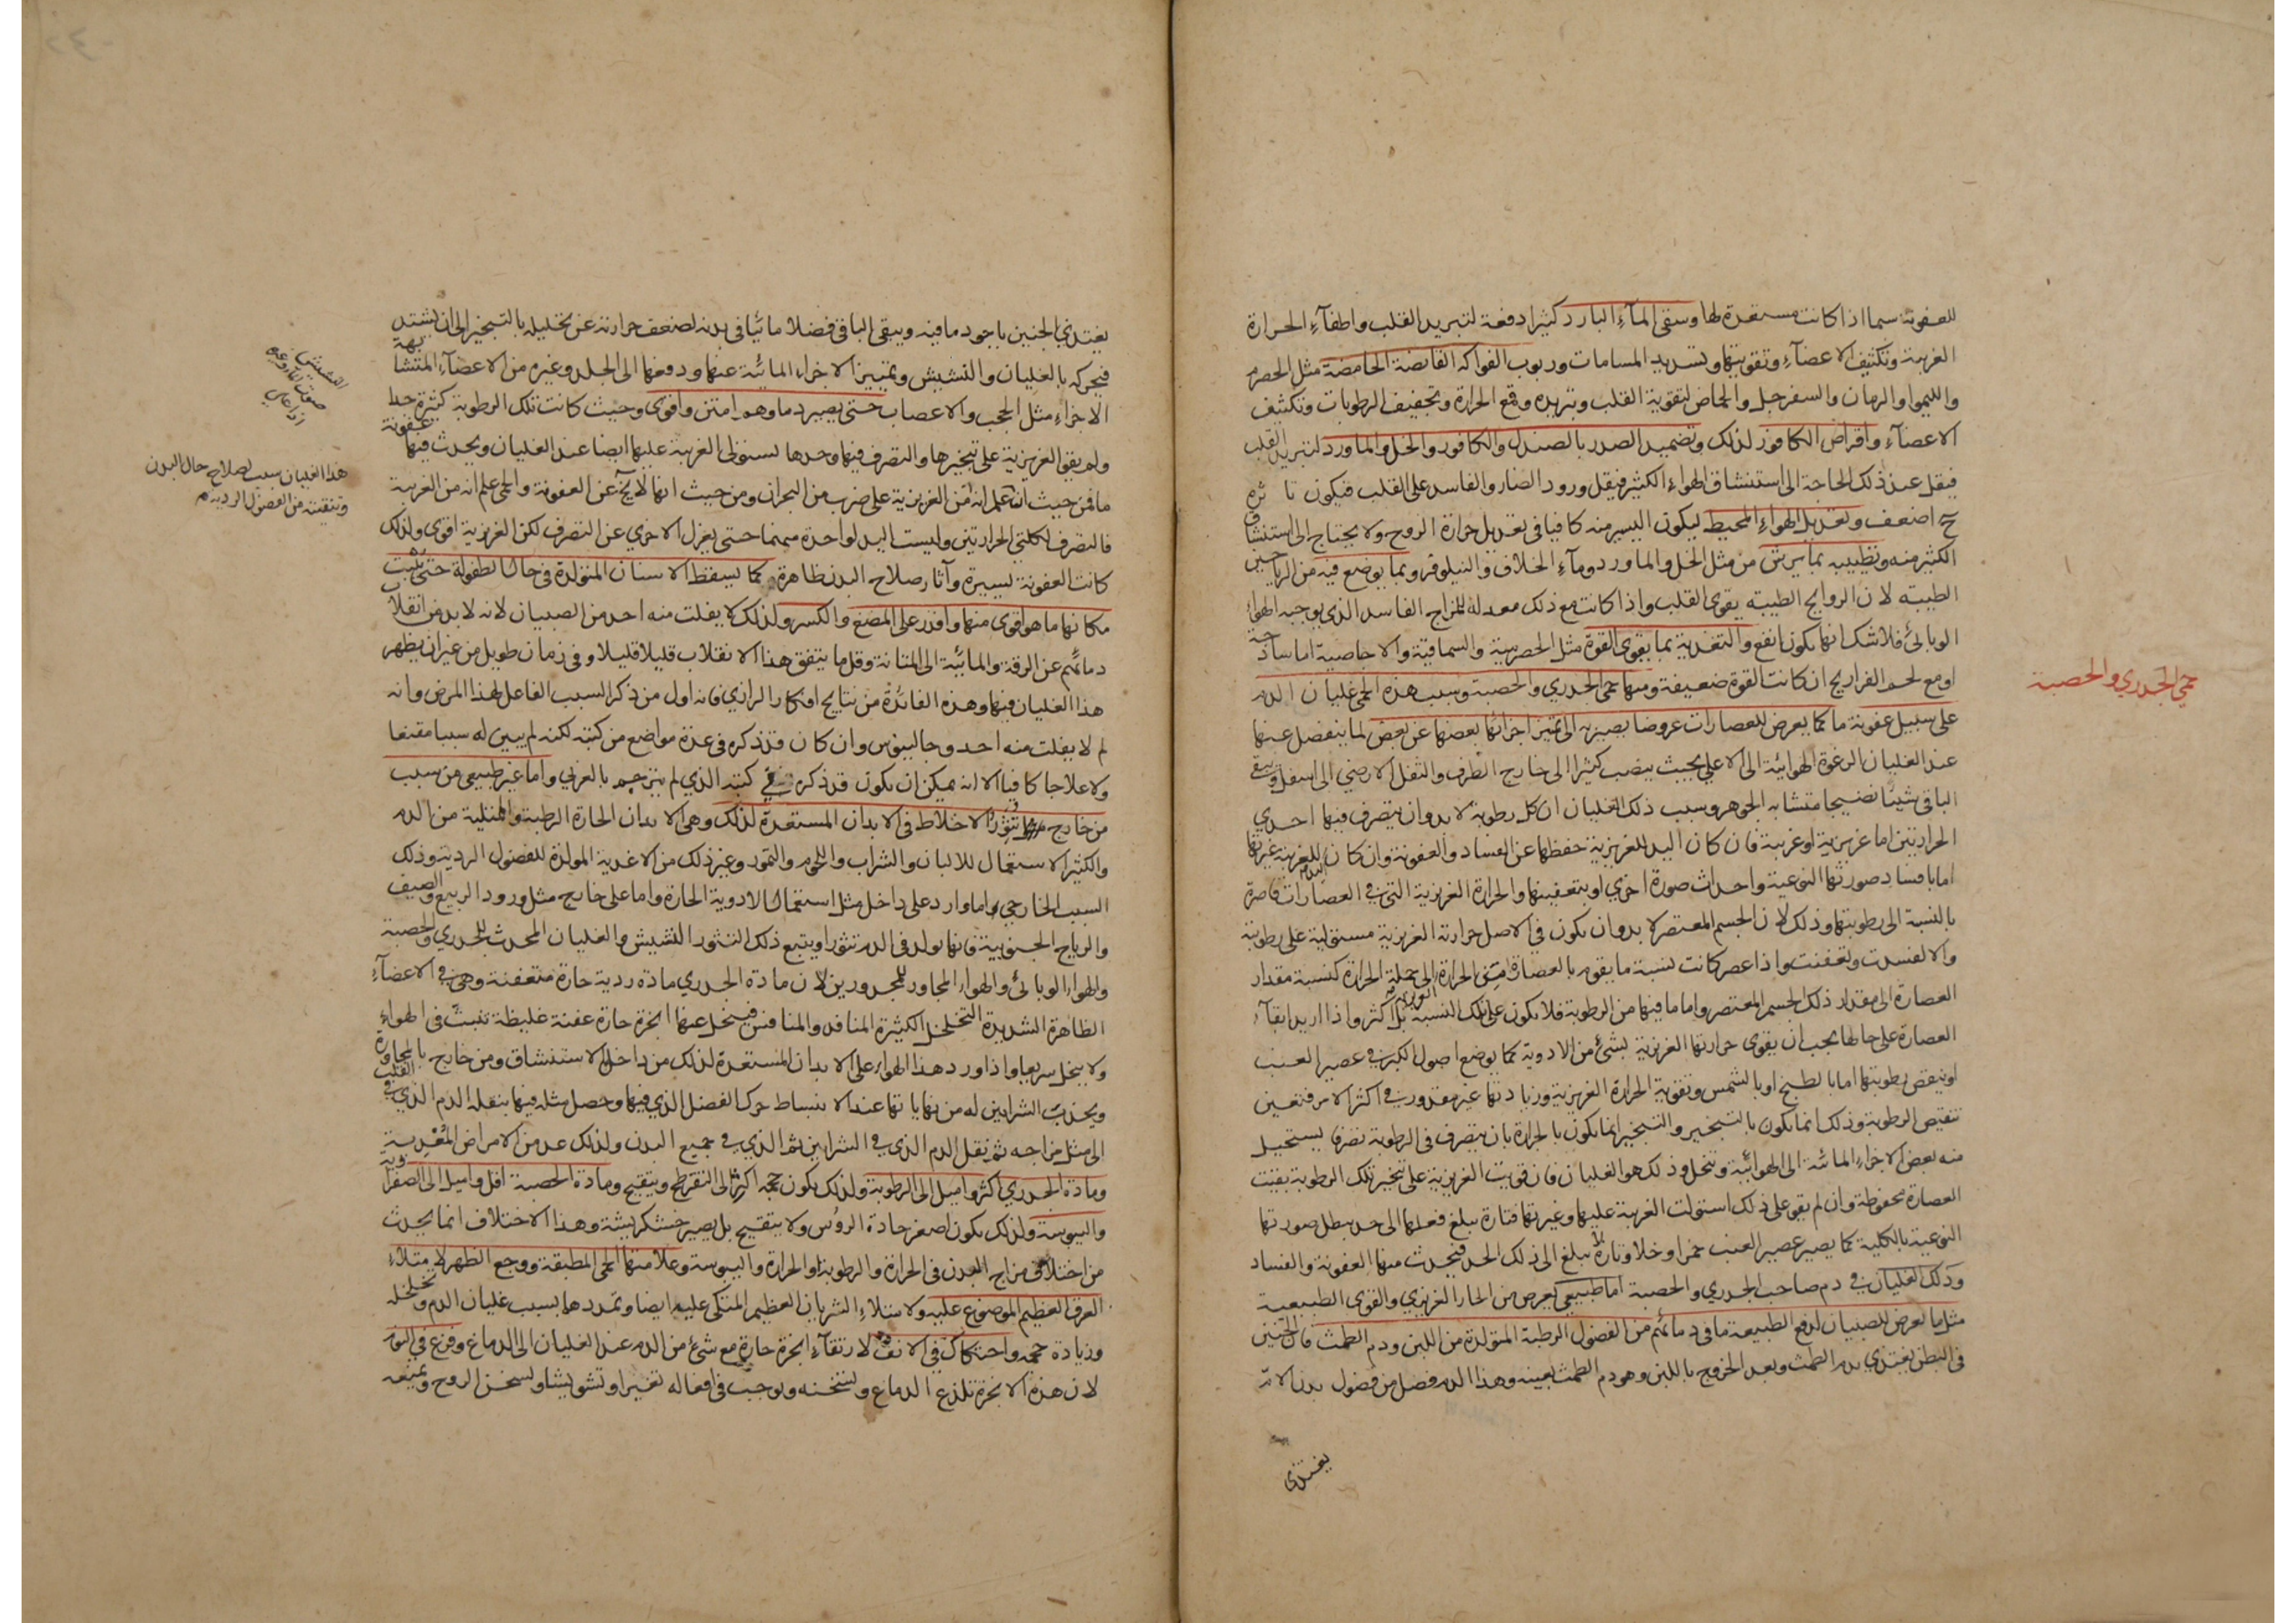 للعفونة سيما اذا كانت مستعدة لها وسقى المآء البارد كثيرا دفعة لتبريد القلب واطفآء الحرارة
الغريبة وتكثيف الاعضآء وتقويتها وتسديد المسامات وربوب الفواكه القابضة الحامضة مثل الحصرم
والليموا والرمان والسفرجل والحماض لتقوية القلب وتبريده وقمع الحرارة وتجفيف الرطوبات وتكثيف
الاعضآء واقراص الكافور لذلك وتضميد الصدر بالصندل والكافور والخل والماورد لتبريد القلب
فيقل عند ذلك الحاجة الى استنشاق الهواء الكثير فيقل ورود الضار والفاسد على القلب فيكون تا ثره
ح اضعف وتعديل الهواء المحيط ليكون اليسير منه كافيا فى تعديل حرارة الروح ولا يحتاج الى استنشاق
الكثير منه وتطييبه بما يرش من مثل الخل والماورد ومآء الخلاف والنيلوفر وبما يوضع فيه من الرياحين
الطيبه لان الروايح الطيبه يقوى القلب واذا كانت مع ذلك معدلة للمزاج الفاسد الذي يوجبه الهواء
الوبائى فلا شك انها يكون انفع والتغذية بما يقوى القوة مثل الحصرمية والسماقية والاجاصية اما ساذجة
او مع لحم الفراريج ان كانت القوة ضعيفة ومنها حمى الجدري والحصبة وسبب هذه الحمى غليان الدم
حمى الجدري والحصبة
على سبيل عفونة ما كما يعرض للعصارات عروضا يصير به الى تميز اجزائها بعضها عن بعض لما ينفصل عنها
عند الغليان الرغوة الهوائية الى الاعلى بحيث ينصب كثيرا الى خارج الظرف والثفل الارضي الى اسفل ويبقى
الباقى شيئا نضيجا متشابه الجوهر وسبب ذلك الغليان ان كل رطوبة لا بد وان يتصرف فيها احدي
الحرارتين اما غريزية او غريبة فان كان اليد للغريزية حفظها عن الفساد والعفونة وان كان للغريبة غيرتها
اما بافساد صورتها النوعية واحداث صورة اخري او بتعفينها والحرارة الغريزية التى فى العصارات قاصرة
بالنسبة الى رطوبتها وذلك لان الجسم المعتصر لا بد وان يكون فى الاصل حرارته الغريزية مستولية على رطوبته
والا لفسدت وتعفنت واذا عصر كانت نسبة ما يقوم بالعصارة من الحرارة الى جملة الحرارة كنسبة مقدار
العصارة الى مقدار ذلك الجسم المعتصر واما ما فيها من الرطوبة فلا يكون على تلك النسبة بل اكثر واذا اريد ابقآء
العصارة على حالها يجب ان يقوى حرارتها الغريزية بشئ من الادوية كما يوضع اصول الكبر فى عصير العنب
او ينقص رطوبتها اما بالطبخ او بالشمس وتقوية الحرارة الغريزية وزيادتها غير مقدور فى اكثر الامر فتعين
تنقيص الرطوبة وذلك انما يكون بالتبخير والتبخير انما يكون بالحرارة بان يتصرف فى الرطوبة تصرفا يستحيل
منه بعض الاجزاء المائية الى الهوائية وتتحلل وذلك هو الغليان فان قويت الغريزية على تبخير تلك الرطوبة بقيت
العصارة محفوظة وان لم يقو على ذلك استولت الغريبة عليها وغيرتها فتارة يبلغ فعلها الى حد يبطل صورتها
النوعية بالكلية كما يصير عصير العنب خمرا وخلا وتارة لا يبلغ الى ذلك الحد فيحدث منها العفونة والفساد
وذلك الغليان فى دم صاحب الجدري والحصبة اما طبيعي يعرض من الحار الغريزي والقوى الطبيعية
مثل ما يعرض للصبيان لدفع الطبيعة ما فى دمائهم من الفضول الرطبة المتولدة من اللبن ودم الطمث فان الجنين
فى البطن يغتذي بدم الطمث وبعد الخروج باللبن وهو دم الطمث بعينه وهذا الدم فضل من فضول بدن الام
يغتذى
يغتذي الجنين باجود ما فيه ويبقى الباقى فضلا مائيا فى بدنه لضعف حرارته عن تحليله بالتبخير الى ان يشتد
فيحركه بالغليان والنشيش وتمييز الاجزاء المائية عنها ودفعها الى الجلد وغيره من الاعضآء المتشابهة
الاجزاء مثل الحجب والاعصاب حتى يصير دماوهم امتن واقوى وحيث كانت تلك الرطوبة كثيرة جدا
ولم يقو الغريزية على تبخيرها والتصرف فيها وحدها يستولى الغريبة عليها ايضا عند الغليان ويحدث فيها عفونة
ما فمن حيث ان علم انه من الغريزية على ضرب من البحران ومن حيث انها لا يخ عن العفونة والحمى علم انه من الغريبة
فالتصرف لكلتى الحرارتين وليست اليد لواحدة منهما حتى يعزل الاخري عن التصرف لكن الغريزية اقوى ولذلك
كانت العفونة يسيرة وآثار صلاح البدن ظاهرة كما يسقط الاسنان المتولدة فى حال الطفولة حتى ينبت
مكانها ما هو اقوى منها واقدر على المضغ والكسر ولذلك لا يفلت منه احد من الصبيان لانه لا بد من انقلاب
دمائهم عن الرقة والمائية الى المتانة وقل ما يتفق هذا الانقلاب قليلا قليلا وفى زمان طويل من غير ان يظهر
هذا الغليان فيها وهذه الفائدة من نتايج افكار الرازي فانه اول من ذكر السبب الفاعل لهذا المرض وانه
لم لا يفلت منه احد وجالينوس وان كان قد ذكره فى عدة مواضع من كتبه لكنه لم يبين له سببا مقنعا
ولا علاجا كافيا الا انه يمكن ان يكون قد ذكره فى كتبه الذي لم يترجم بالعربي واما غير طبيعي من سبب
من خارج تثور الاخلاط فى الابدان المستعدة لذلك وهى الابدان الحارة الرطبة والممتلية من الدم
والكثير الاستعمال للالبان والشراب واللحوم والتمور وغير ذلك من الاغذية المولدة للفضول الردية وذلك
السبب الخارجي اما وارد على داخل مثل استعمال الادوية الحارة واما على خارج مثل ورود الربيع والصيف
والرياح الجنوبية فانها يولد فى الدم تثورا ويتبع ذلك التثور النشيش والغليان المحدث للجدري والحصبة
والهواء الوبائى والهواء المجاور للمجدورين لان مادة الجدري مادة ردية حارة متعفنة وهى فى الاعضآء
الظاهرة الشديدة التخلخل الكثيرة المنافذ والمنافس فينحل عنها ابخرة حارة عفنة غليظة تنبث فى الهواء
ولا يتحلل سريعا واذا ورد هذا الهواء على الابدان المستعدة لذلك من داخل بالاستنشاق ومن خارج بالمجاورة
ويجذب الشرايين له من نهاياتها عند الانبساط حرك الفضل الذي فيها وحصل مثله فيها بنقله الدم الذي فى القلب
الى مثل مزاجه ثم ينقل الدم الذي فى الشرايين ثم الذي فى جميع البدن ولذلك عد من الامراض المعدية
ومادة الجدري اكثر واميل الى الرطوبة ولذلك يكون حجمه اكبر الى التفرطح ويتقيح ومادة الحصبة اقل واميل الى الصفراوية
واليبوسة ولذلك يكون اصغر حادة الروس ولا يتقيح بل يصير خشكريشة وهذا الاختلاف انما يحدث
من اختلاف مزاج البدن فى الحرارة والرطوبة او الحرارة واليبوسة وعلامتها الحمى المطبقة ووجع الظهر لامتلاء
العرق العظيم الموضوع عليه ولامتلاء الشريان العظيم المتكى عليه ايضا وتمددهما بسبب غليان الدم وتخلخله
وزيادة حجمه واحتكاك فى الانف لارتقآء ابخرة حارة مع شئ من الدم عند الغليان الى الدماغ وفزع فى النوم
لان هذه الابخرة تلذع الدماغ وتسخنه ويوجب فى افعاله تغيرا وتشويشا ولسخن الروح وتميعه
النشيش
صوت الماء وغيره
اذا غلى
هذا الغليان سبب لصلاح حال البدن
وتنقيته من الفضول الردية